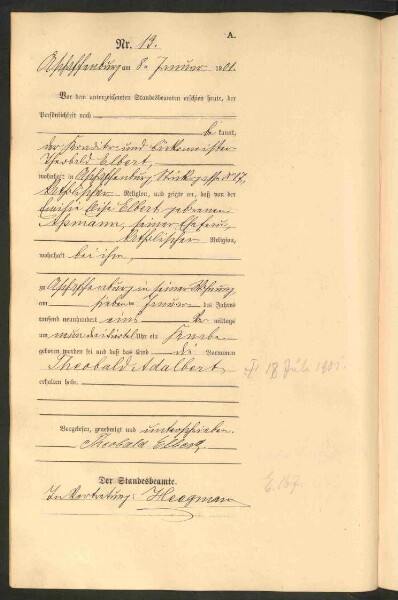 A.
Nr. 13.
Aschaffenburg am 8. Januar 1901.
Vor dem unterzeichneten Standesbeamten erschien heute, der
Persönlichkeit nach
be kannt,
der Konditor und
Theobald Elbert,
wohnhaft in Aschaffenburg 17,
katholischer Religion, und zeigte an, daß von der
Elbert geborenen
Aßmann, seiner Ehefrau,
katholischer Religion,
wohnhaft bei ihm,
zu Aschaffenburg in seiner Wohnung
am siebten Januar des Jahres
tausend neunhundert eins Vor mittags
um neun Uhr ein Knabe
geboren worden sei und daß das Kind die Vornamen
Theobald Adalbert
erhalten habe.
† 18 Juli 1901.
Vorgelesen, genehmigt und unterschrieben.
Theobald Elbert
Der Standesbeamte.
In Vertretung: Heegmann
E. 167.